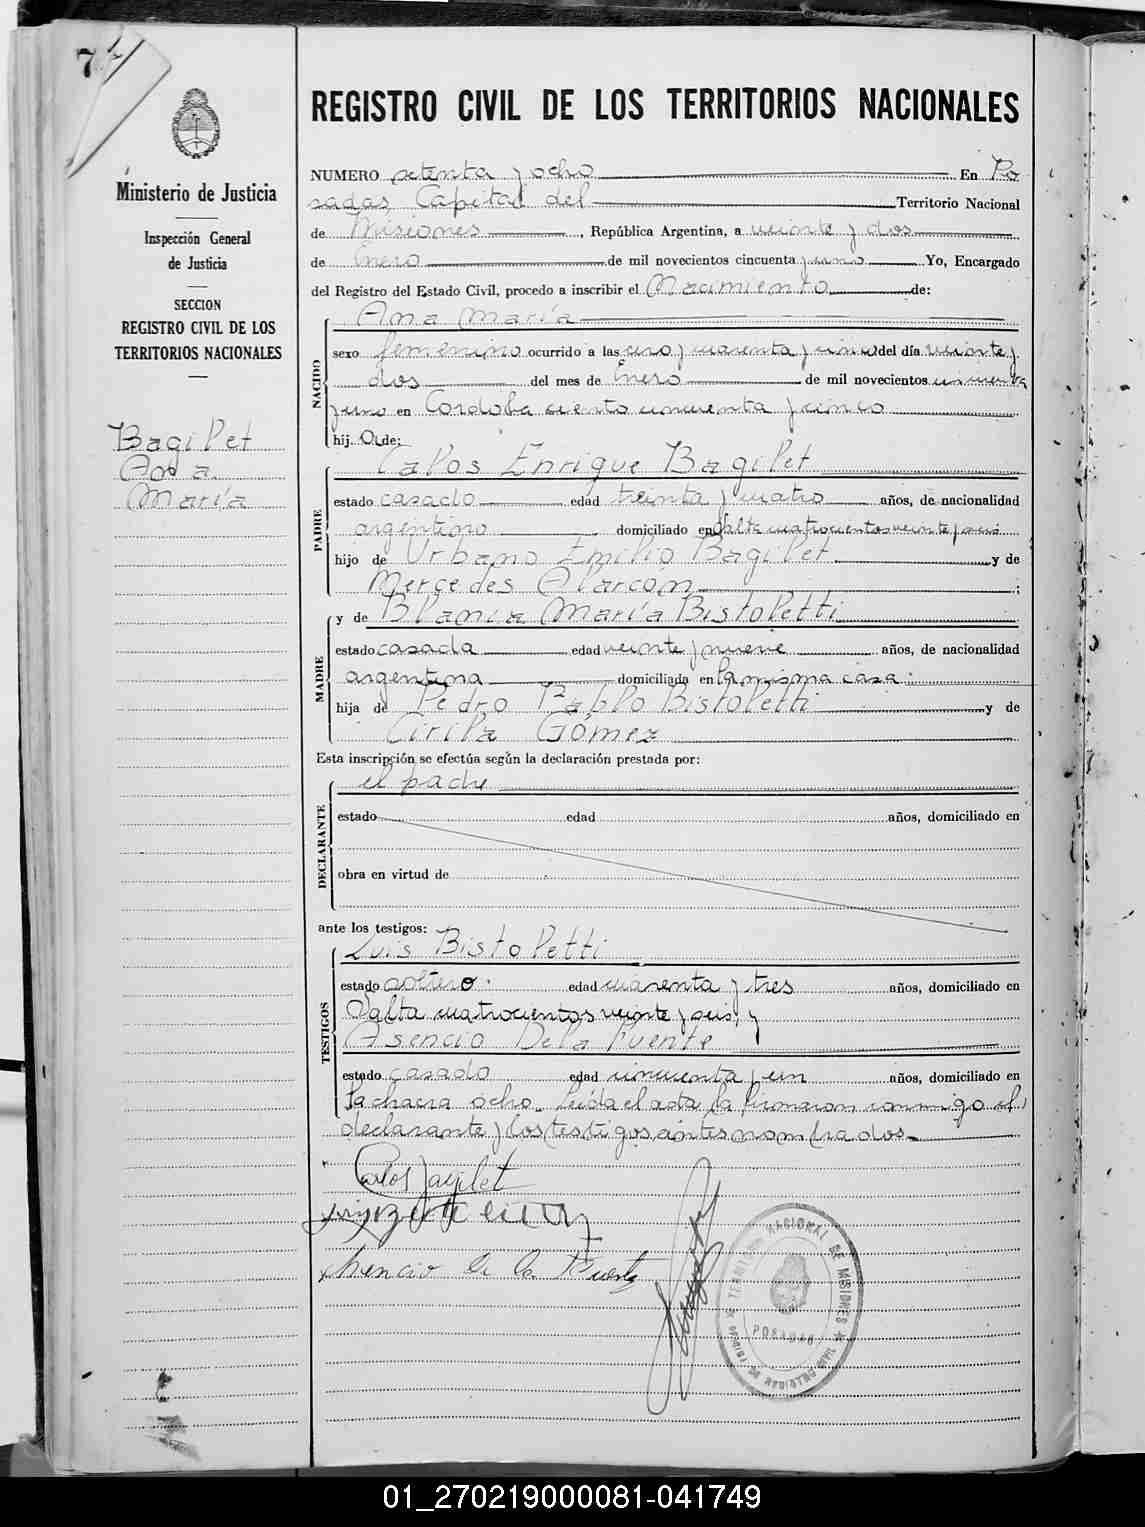 7
Ministerio de Justicia
Inspección General
de Justicia
SECCION
REGISTRO CIVIL DE LOS
TERRITORIOS NACIONALES
Bagilet
Ana
María
REGISTRO CIVIL DE LOS TERRITORIOS NACIONALES
NUMERO setenta y ocho En Po
sadas Capital del Territorio Nacional
de Misiones, República Argentina, a veinte y dos
de Enero de mil novecientos cincuenta y uno Yo, Encargado
del Registro del Estado Civil, procedo a inscribir el Nacimiento de:
Ana María
NACIDO
sexo femenino ocurrido a las cero y cuarenta y cinco del día veinte y
dos del mes de Enero de mil novecientos cincuenta
y uno en Cordoba ciento cincuenta y cinco
hij a de:
Calos Enrique Bagilet
PADRE
estado casado edad treinta y cuatro años, de nacionalidad
argentino domiciliado en Salta cuatrocientos veinte y seis
hijo de Urbano Emilio Bagilet y de
Mercedes Alarcón ;
y de Blanca María Bistoletti
MADRE
estado casada edad veinte y nueve años, de nacionalidad
argentina domiciliada en la misma casa.
hija de Pedro Pablo Bistoletti y de
Cirila Gómez
Esta inscripción se efectúa según la declaración prestada por:
el padre
DECLARANTE
estado edad años, domiciliado en
obra en virtud de
ante los testigos:
Luis Bistoletti
TESTIGOS
estado soltero. edad cuarenta y tres años, domiciliado en
Salta cuatrocientos veinte y seis, y
Asencio De la Fuente
estado casado edad cincuenta y un años, domiciliado en
la chacra ocho. Leida el acta, la firmaron conmigo el
declarante y los testigos antes nombrados.
Carlos Bagilet
Asencio de la Fuente
TERRITORIO NACIONAL DE MISIONES
POSADAS
OFICINA DE REGISTRO CIVIL
01_270219000081-041749